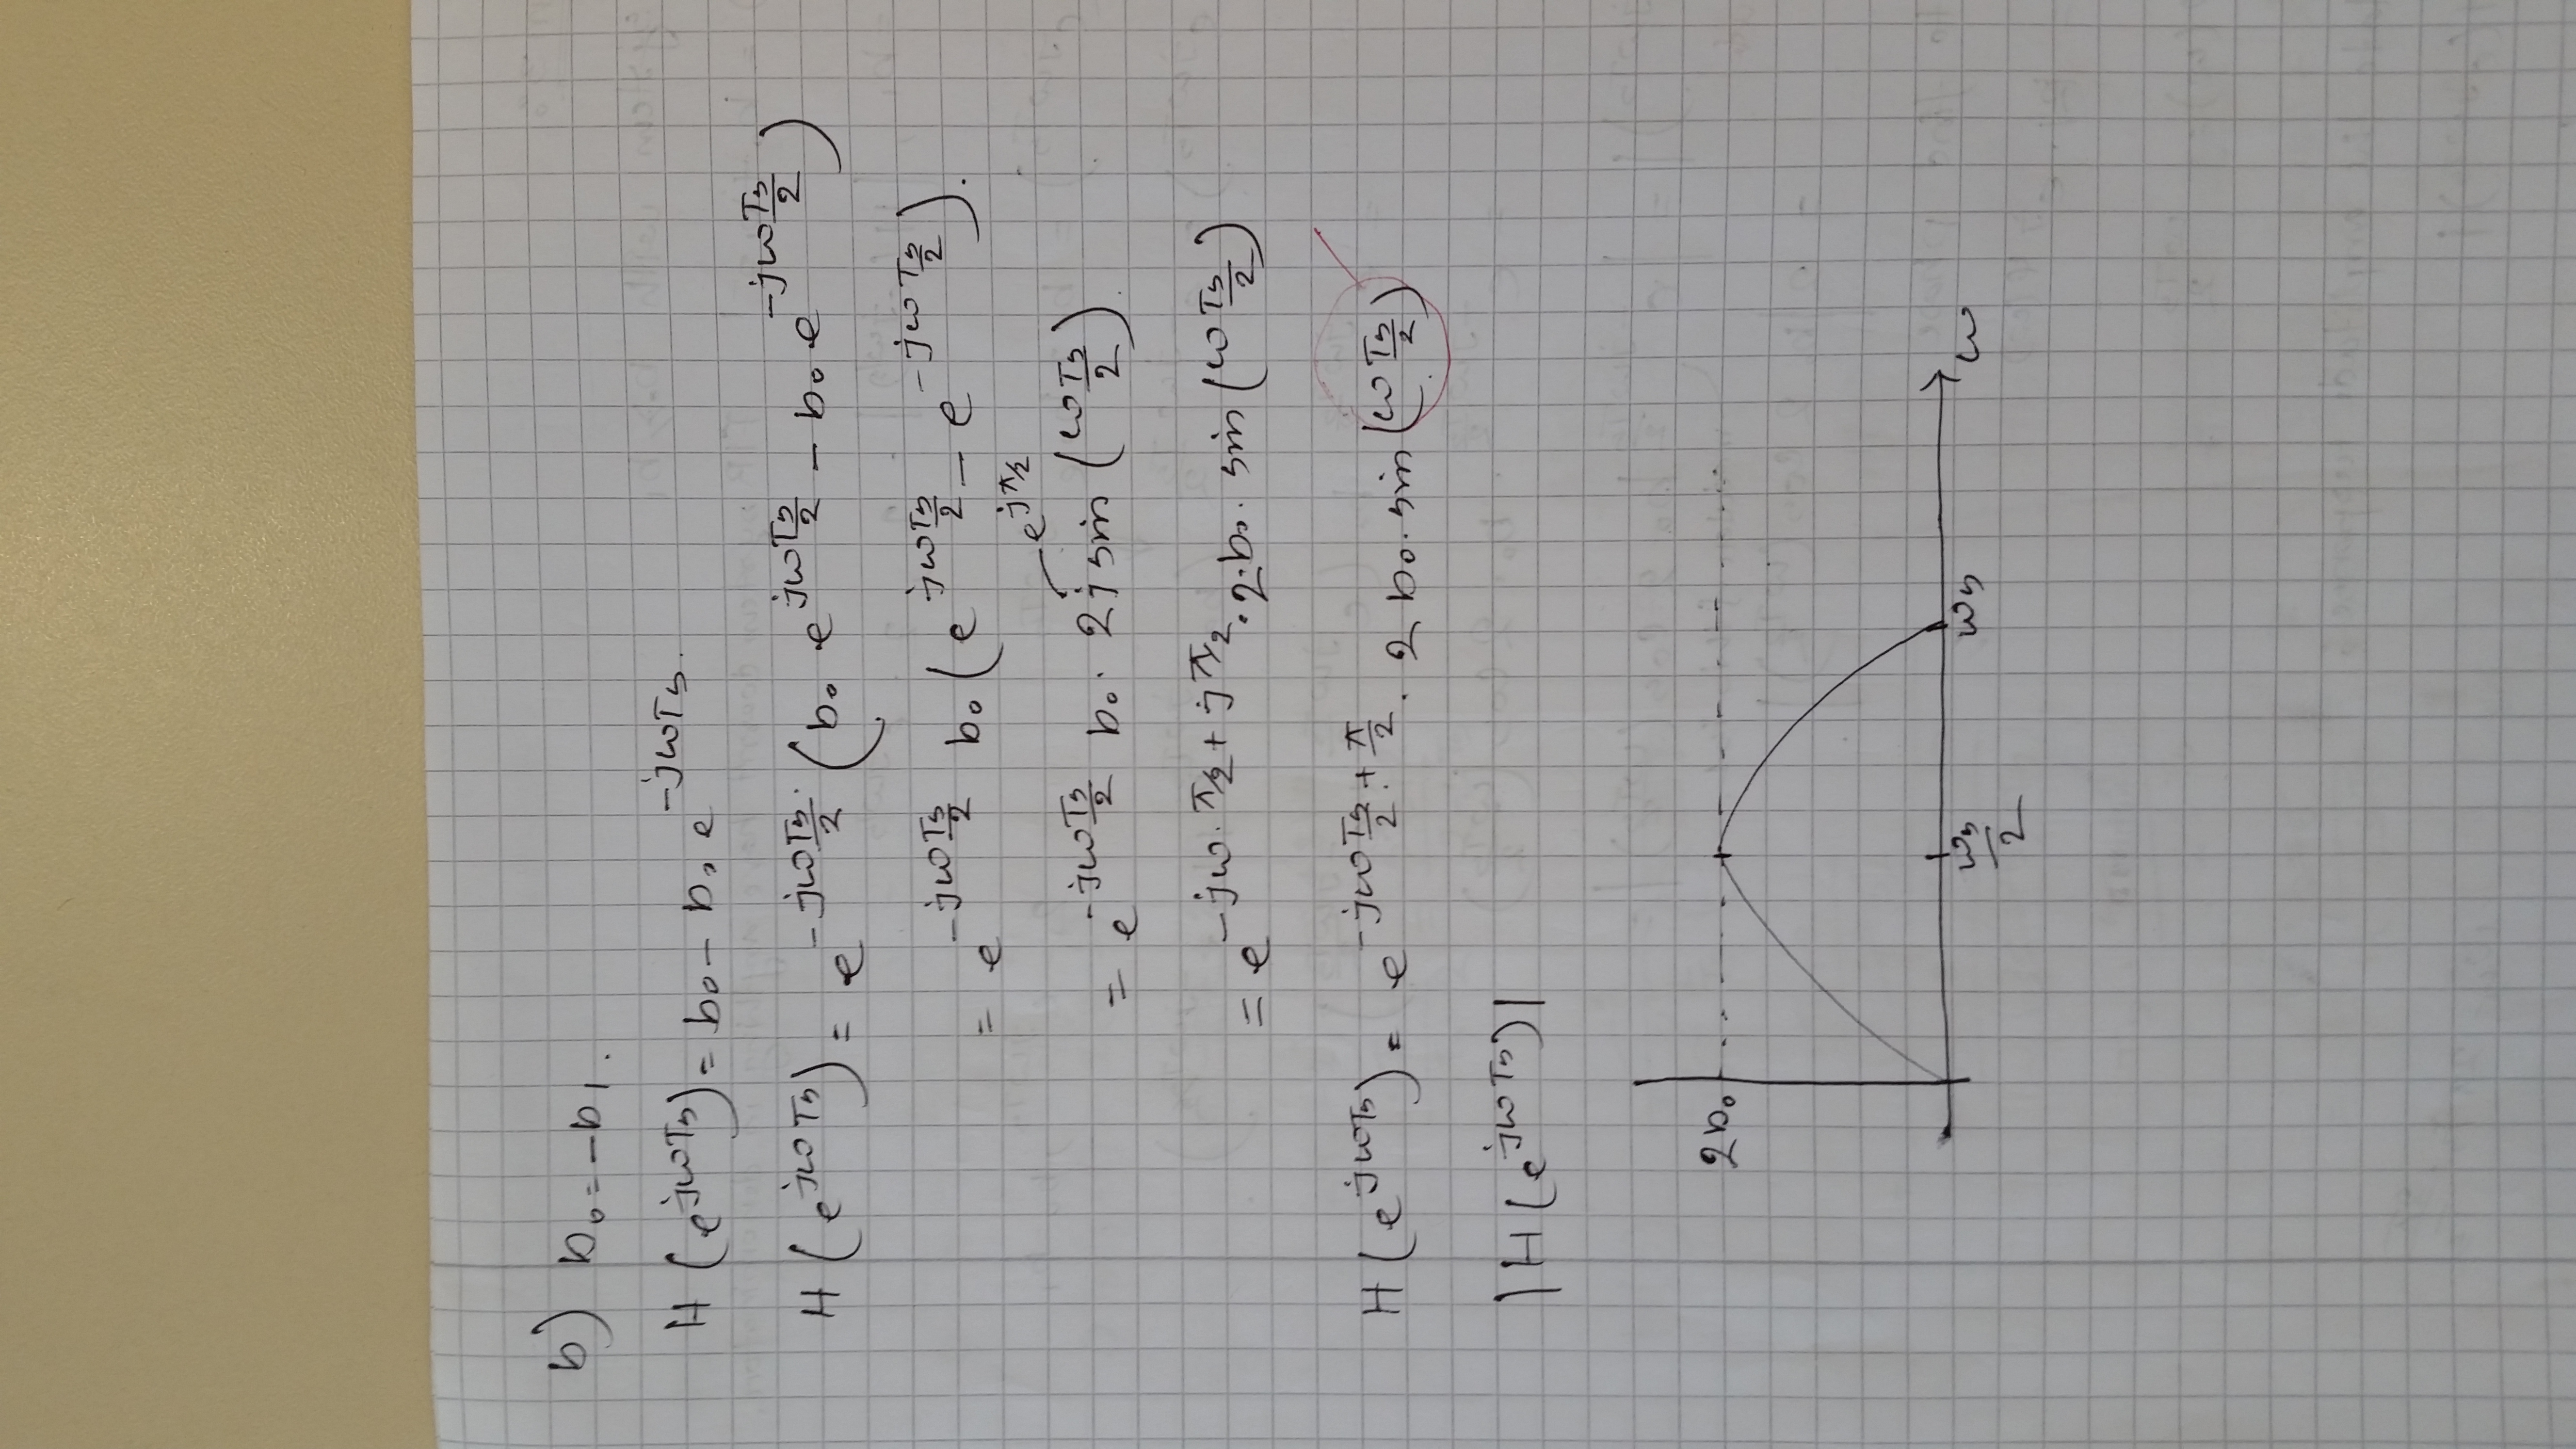 b) b₀ = -b₁.
H(e^{jωTs}) = b₀ - b₀ e^{-jωTs}.
H(e^{jωTs}) = e^{-jω Ts/2} (b₀ e^{jω Ts/2} - b₀ e^{-jω Ts/2})
= e^{-jω Ts/2} b₀ (e^{jω Ts/2} - e^{-jω Ts/2}).
e^{jπ/2}
= e^{-jω Ts/2} b₀ · 2j sin (ω Ts/2).
= e^{-jω · π/2 + jπ/2} · 2 · b₀ · sin (ω Ts/2)
H(e^{jωTs}) = e^{-jω Ts/2 + π/2} · 2 b₀ · sin (ω Ts/2)
|H(e^{jωTs})|
2b₀
ωs/2 ωs ω